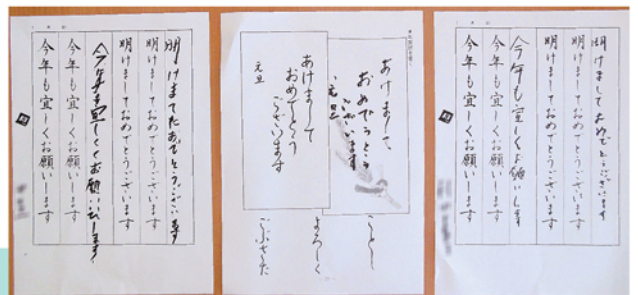 明けましておめでとうございます
明けましておめでとうございます
明けましておめでとうございます
今年も宜しくお願いします
今年も宜しくお願いします
今年も宜しくお願いします
あけまして
おめでとう
ございます
元旦
あけまして
おめでとう
ございます
元旦
よろしく
ごぶさた
明けま
でとうございます
明けましておめでとうございます
明けましておめでとうございます
今年も宜しくお願いします
今年も宜しくお願いします
今年も宜しくお願いします